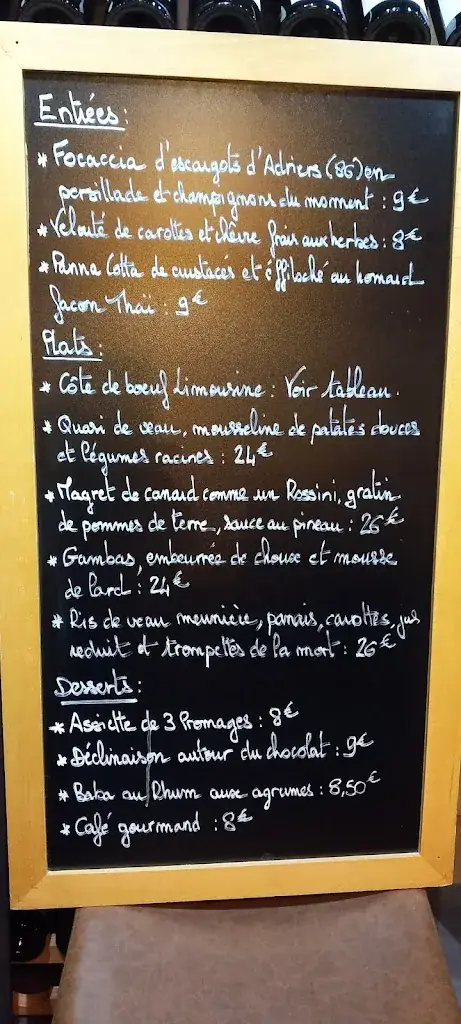 Entrées :
* Focaccia d'escargots d'Adriers (86) en
persillade et champignons du moment : 9€
* Velouté de carottes et chèvre frais aux herbes : 8€
* Panna Cotta de crustacés et éffiloché au homard
façon Thaï : 9€
Plats :
* Côte de boeuf Limousine : Voir tableau.
* Quasi de veau, mousseline de patates douces
et légumes racines : 24€
* Magret de canard comme un Rossini, gratin
de pommes de terre, sauce au pineau : 26€
* Gambas, embeurrée de choux et mousse
de lard : 24€
* Ris de veau meunière, panais, carottes, jus
reduit et trompettes de la mort : 26€
Desserts :
* Assiette de 3 Fromages : 8€
* Déclinaison autour du chocolat : 9€
* Baba au Rhum aux agrumes : 8,50€
* Café gourmand : 8€